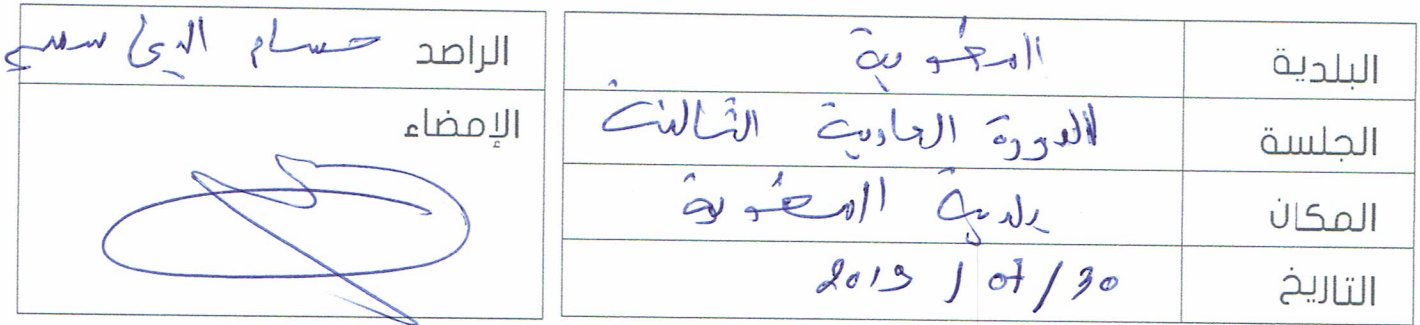 البلدية المحمدية
الجلسة الدورة العادية الثالثة
المكان بلدية
التاريخ 2019 / 07 / 30
الراصد حسام
الإمضاء